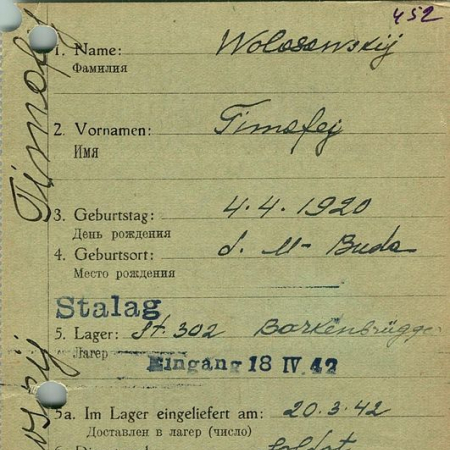 452
1. Name: Wolosowskij
Фамилия
2. Vornamen: Timofej
Имя
3. Geburtstag: 4.4.1920
День рождения
4. Geburtsort: d. M- Buda
Место рождения
Stalag
5. Lager: St. 302 Barkenbrügge
Лагерь
Eingang 18 IV. 42
5a. Im Lager eingeliefert am: 20.3.42
Доставлен в лагерь (число)
Soldat
Timofej